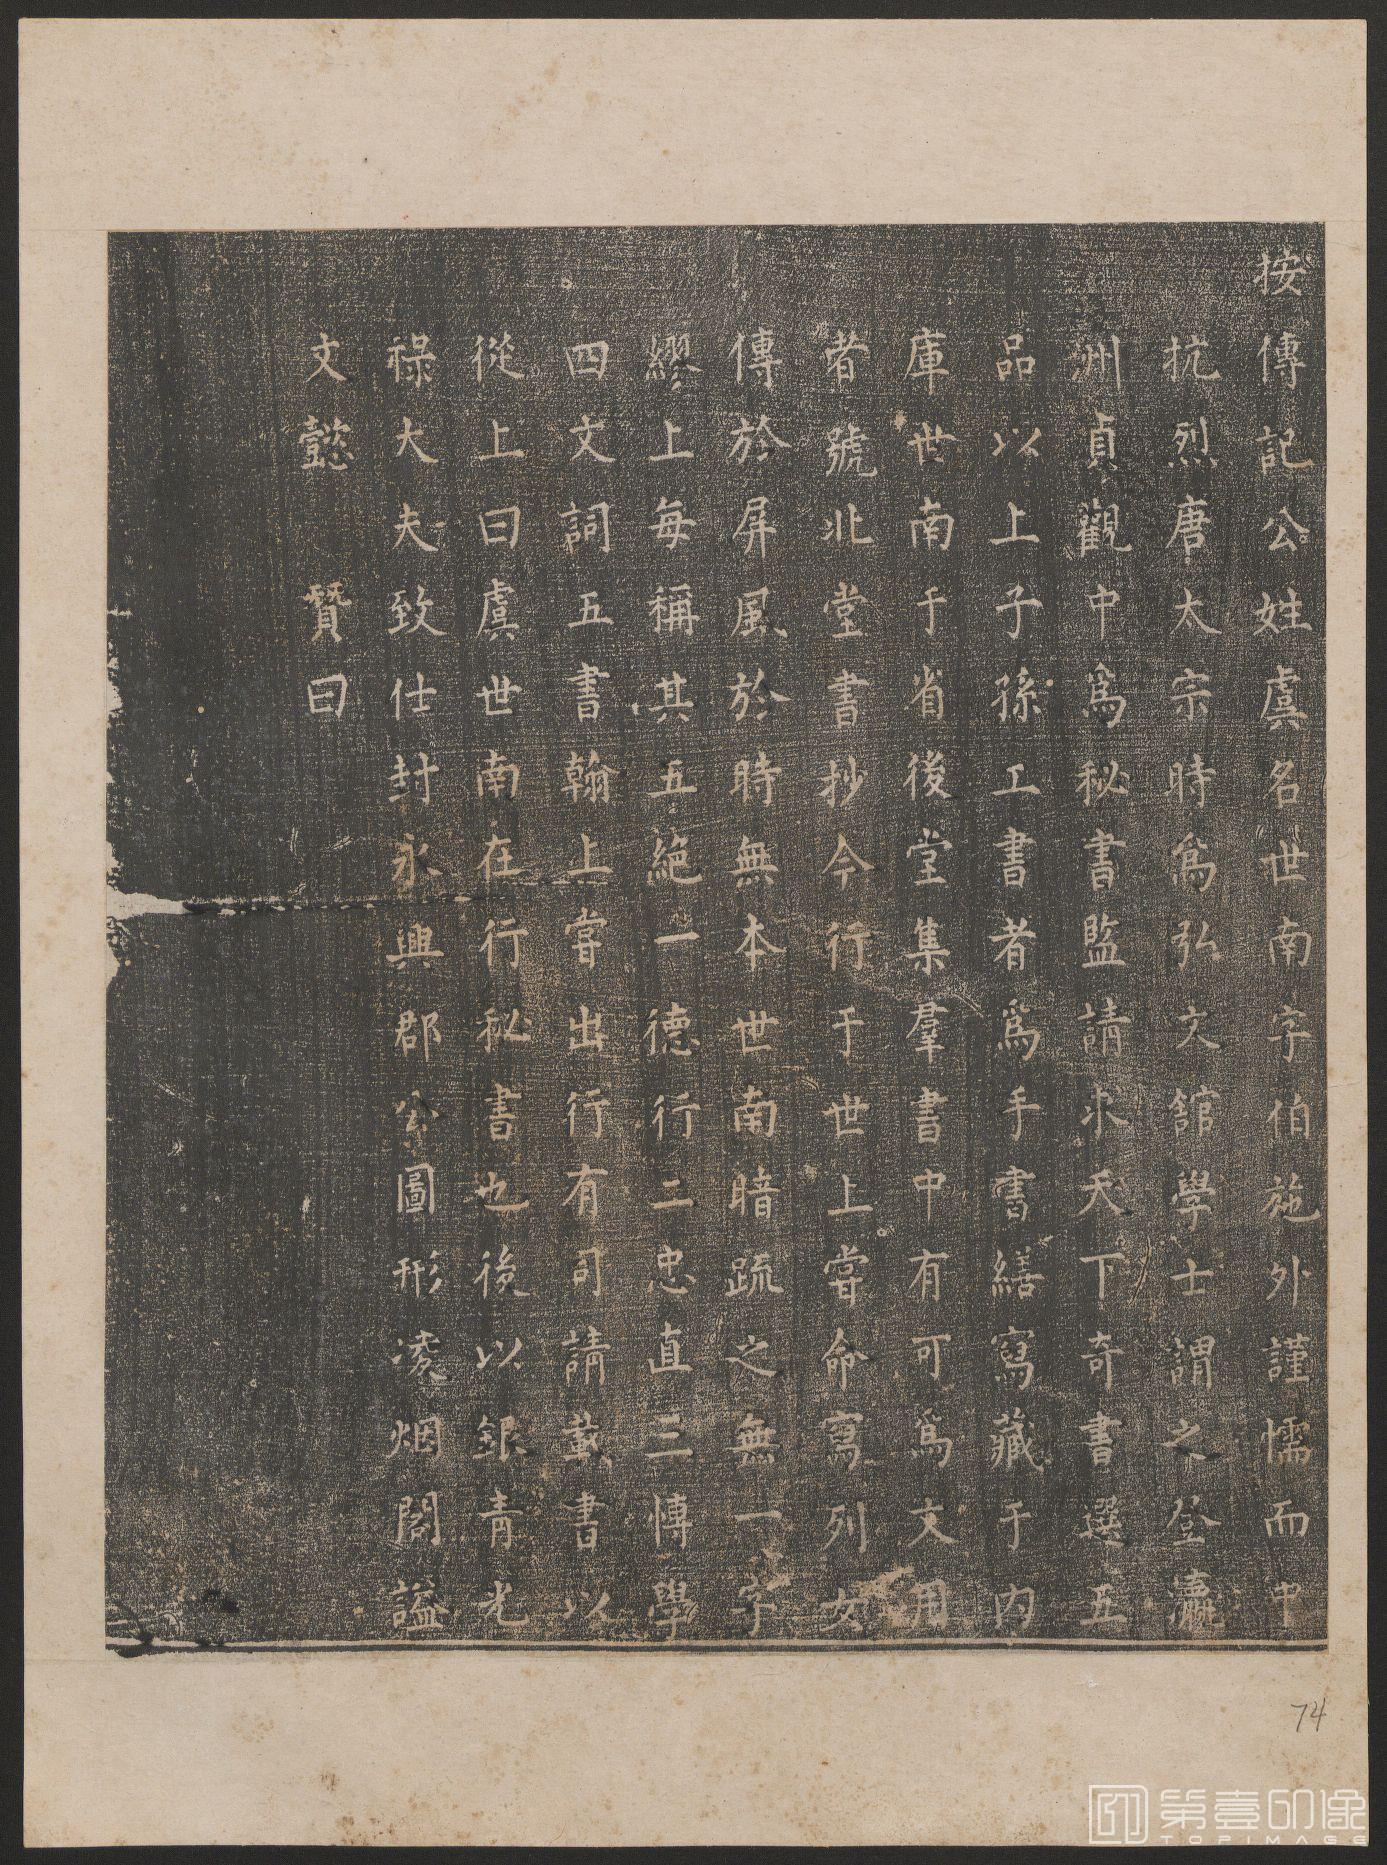 按傳記公姓虞名世南字伯施外謹懦而中
抗烈唐太宗時爲弘文館學士謂之登瀛
洲貞觀中爲秘書監請求天下奇書選五
品以上子孫工書者爲手書繕寫藏于内
庫世南于省後堂集羣書中有可爲文用
者號北堂書抄今行于世上嘗命寫列女
傳於屏風於時無本世南暗疏之無一字
繆上每稱其五絕一德行二忠直三博學
四文詞五書翰上嘗出行有司請載書以
從上曰虞世南在行秘書也後以銀青光
祿大夫致仕封永興郡公圖形凌烟閣謚
文懿 贊曰
74
第壹印像
TOPIMAGE